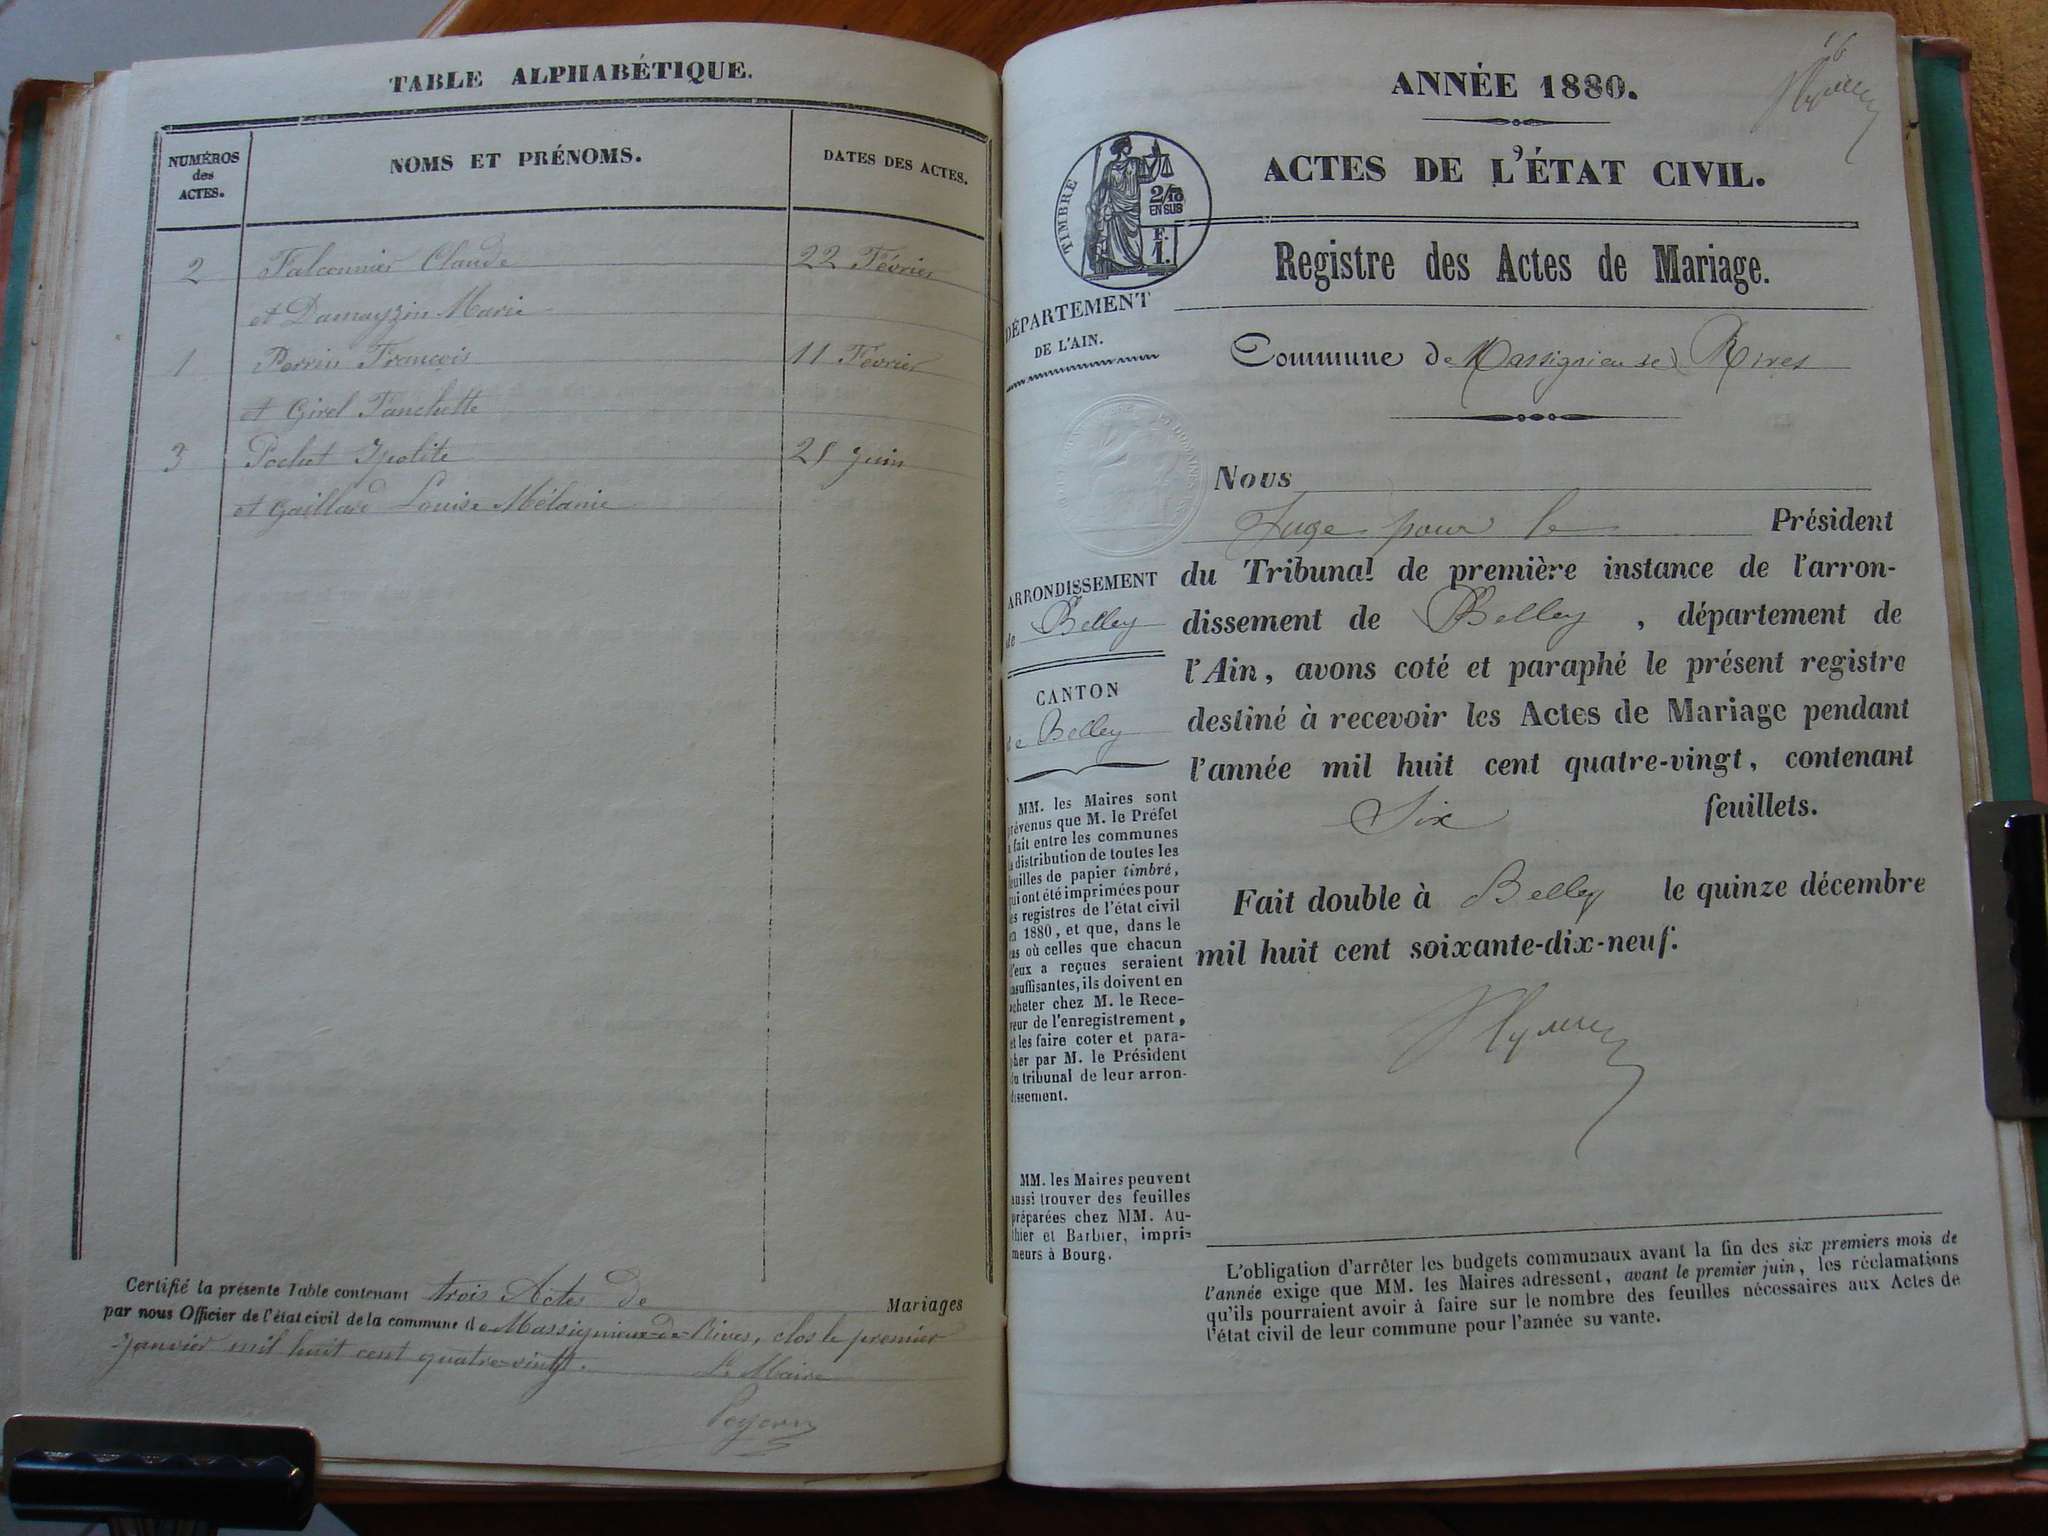 TABLE ALPHABÉTIQUE.
NUMÉROS
des
ACTES.
NOMS ET PRÉNOMS.
DATES DES ACTES.
2 Falconnier Claude 22 Février
et Damayzin Marie
1 Perrin François 11 Février
et Girel Fanchette
3 Pochet Ypolite 25 Juin
et Gaillard Louise Mélanie
Certifié la présente Table contenant trois Actes de Mariages
par nous Officier de l'état civil de la commune de Massignieux-de-Rives, clos le premier
Janvier mil huit cent quatre-vingt.
Le Maire
6
ANNÉE 1880.
ACTES DE L'ÉTAT CIVIL.
TIMBRE
2/10
EN SUS
F.
1.
Registre des Actes de Mariage.
DÉPARTEMENT
DE L'AIN.
Commune de Massignieu de Rives
ARRONDISSEMENT
de Belley
CANTON
de Belley
MM. les Maires sont
prévenus que M. le Préfet
a fait entre les communes
la distribution de toutes les
feuilles de papier timbré,
qui ont été imprimées pour
les registres de l'état civil
en 1880, et que, dans le
cas où celles que chacun
d'eux a reçues seraient
insuffisantes, ils doivent en
acheter chez M. le Rece-
veur de l'enregistrement,
et les faire coter et para-
pher par M. le Président
du tribunal de leur arron-
dissement.
MM. les Maires peuvent
aussi trouver des feuilles
préparées chez MM. Au-
thier et Barbier, impri-
meurs à Bourg.
Nous
Juge pour le Président
du Tribunal de première instance de l'arron-
dissement de Belley, département de
l'Ain, avons coté et paraphé le présent registre
destiné à recevoir les Actes de Mariage pendant
l'année mil huit cent quatre-vingt, contenant
Six feuillets.
Fait double à Belley le quinze décembre
mil huit cent soixante-dix-neuf.
L'obligation d'arrêter les budgets communaux avant la fin des six premiers mois de
l'année exige que MM. les Maires adressent, avant le premier juin, les réclamations
qu'ils pourraient avoir à faire sur le nombre des feuilles nécessaires aux Actes de
l'état civil de leur commune pour l'année su vante.